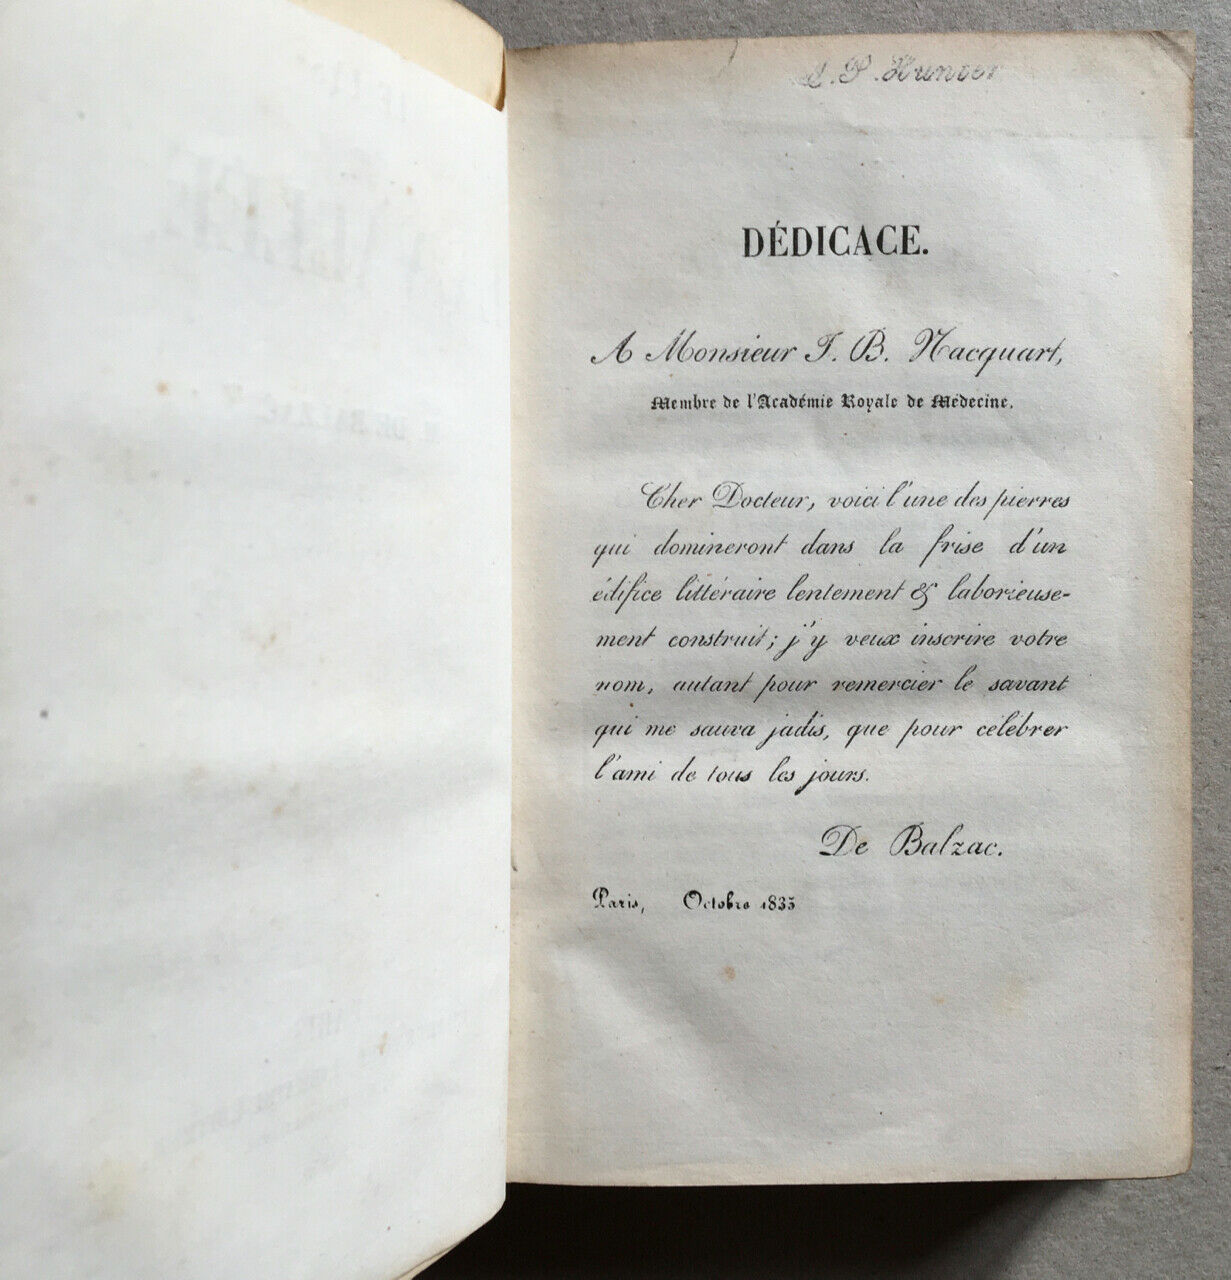 S. P. Hunter
DÉDICACE.
A Monsieur J. B. Nacquart,
Membre de l'Académie Royale de Médecine.
Cher Docteur, voici l'une des pierres
qui domineront dans la frise d'un
édifice littéraire lentement & laborieuse-
ment construit; j'y veux inscrire votre
nom, autant pour remercier le savant
qui me sauva jadis, que pour célébrer
l'ami de tous les jours.
De Balzac.
Paris, Octobre 1835